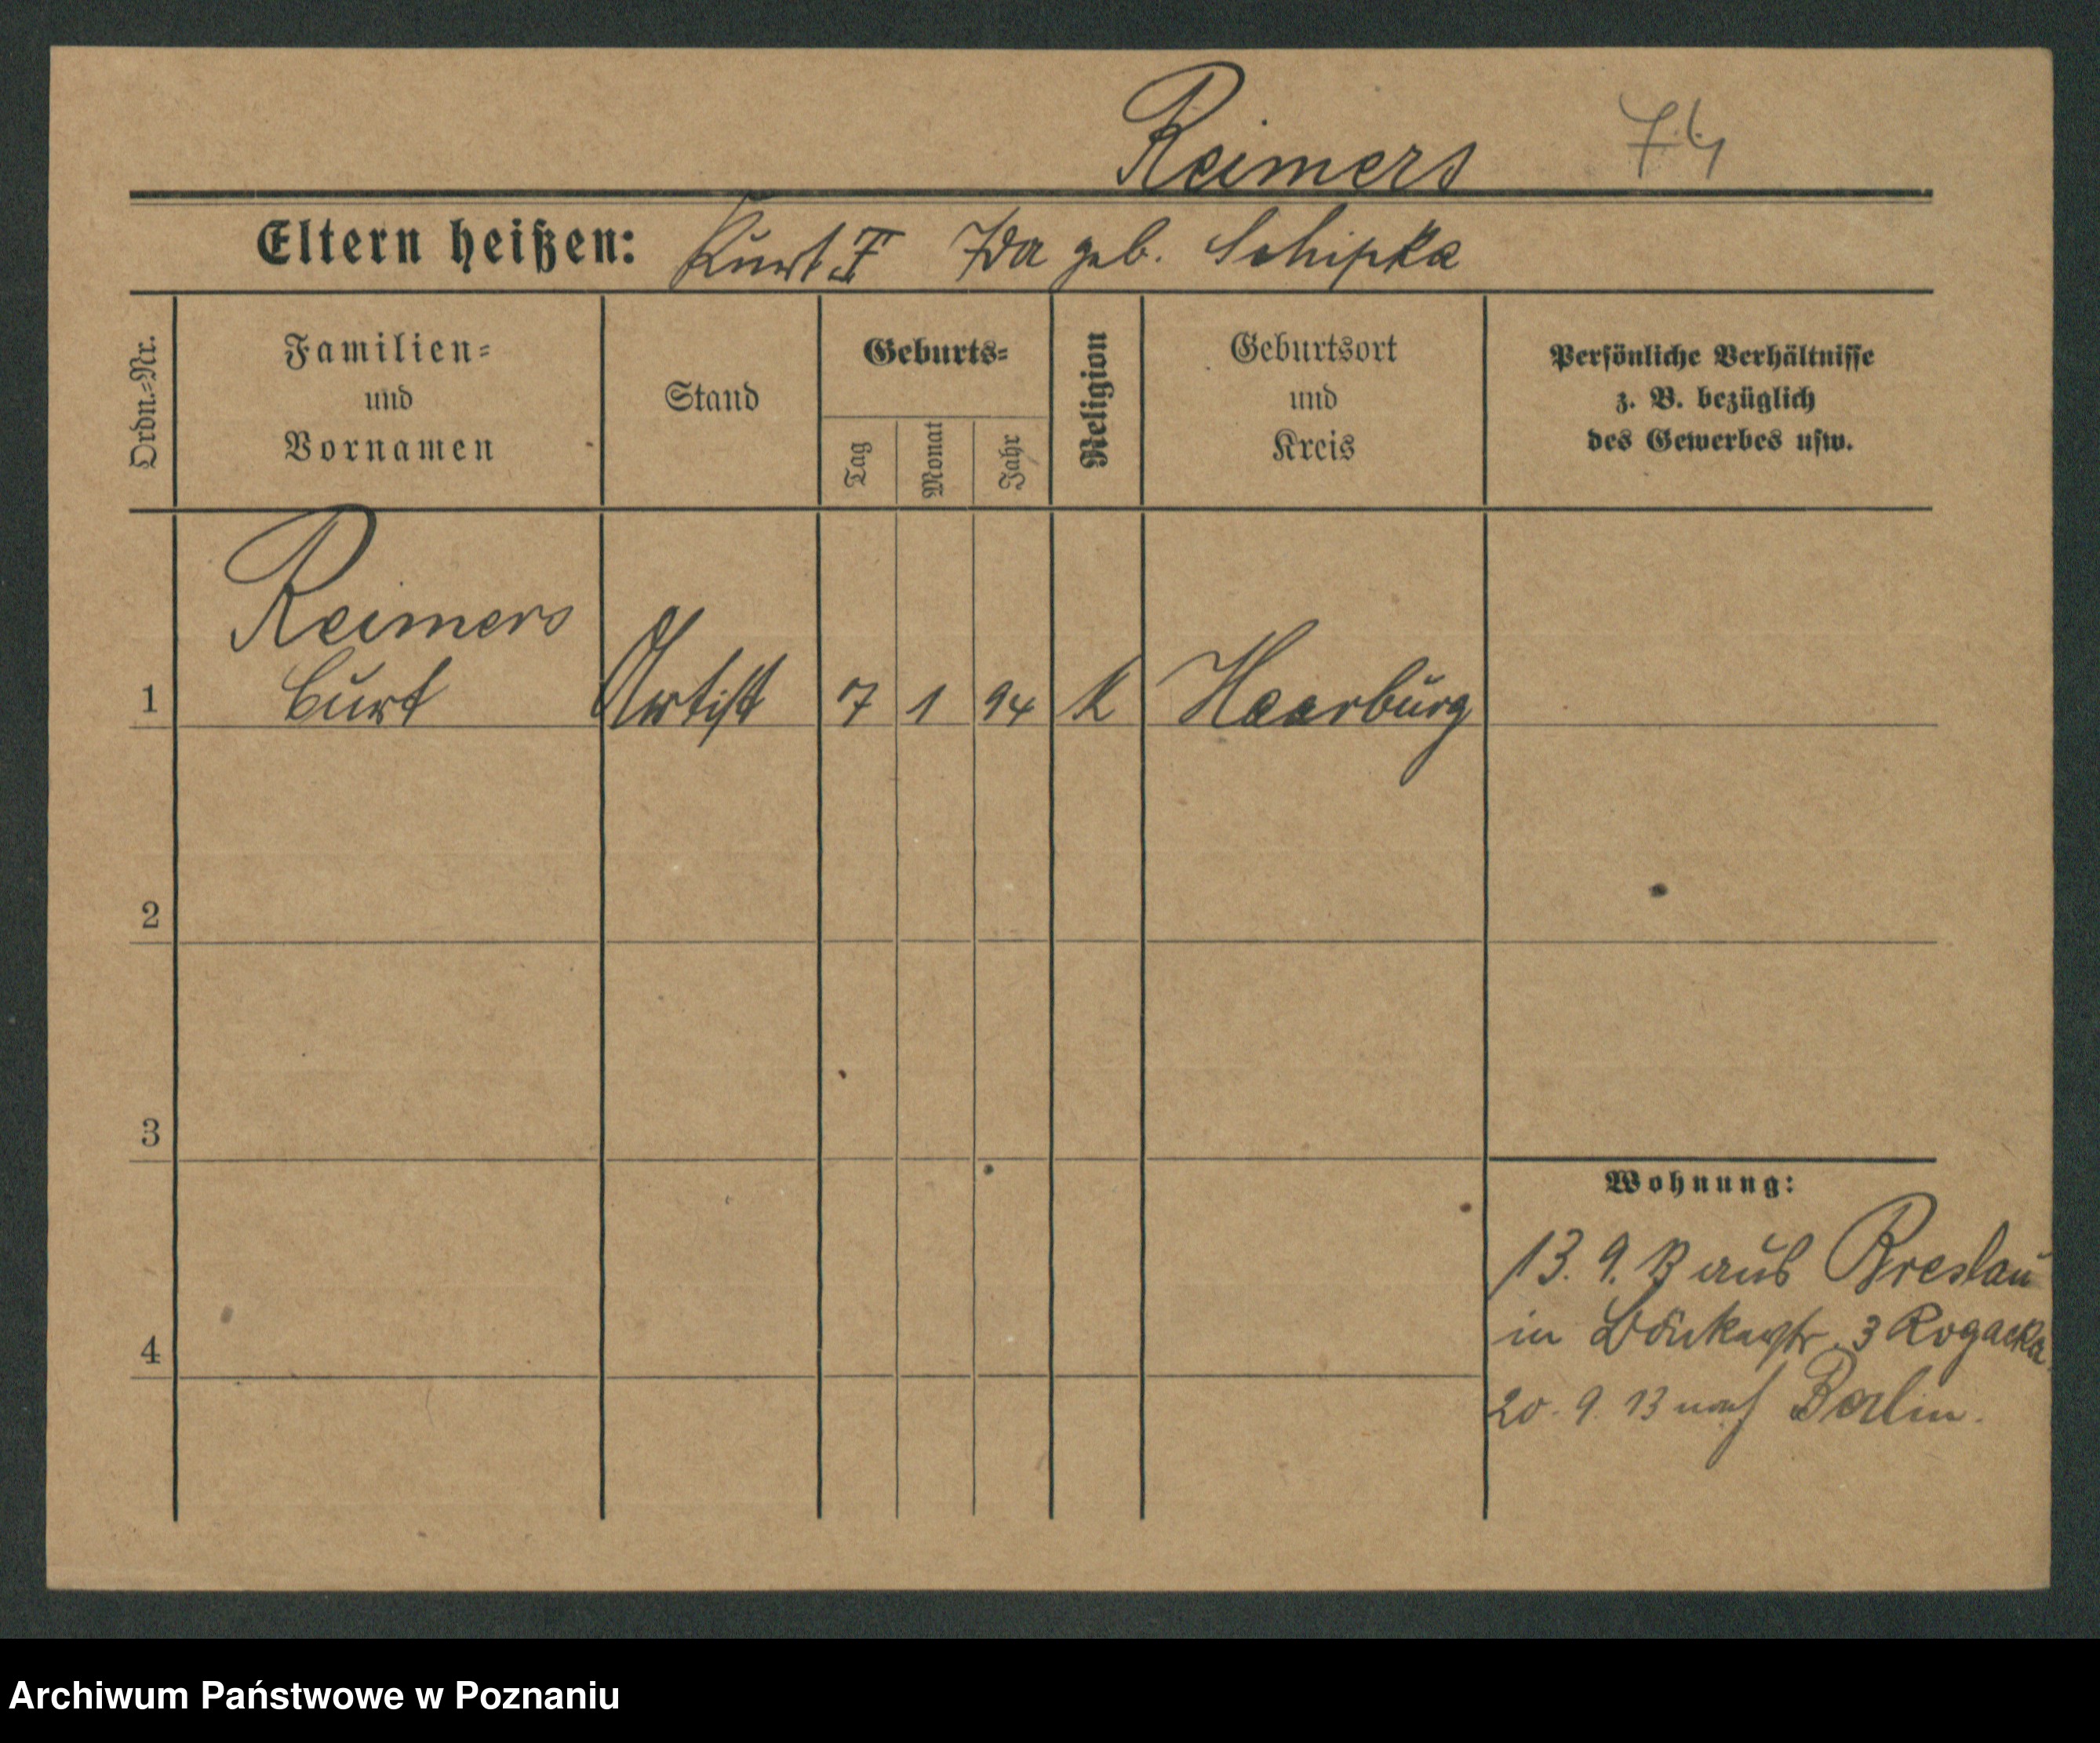 Reimers 74
Eltern heißen: Kurt I Ida geb. Schipka
Ordn.-Nr.
Familien-
und
Vornamen
Stand
Geburts-
Tag
Monat
Jahr
Religion
Geburtsort
und
Kreis
Persönliche Verhältnisse
z. B. bezüglich
des Gewerbes usw.
Reimers
1 Curt Artist 7 1 94 K Haarburg
2
3
Wohnung:
13. 9. 13 aus Breslau
in 3 Rogacka
4
20. 9. 13 nach Berlin.
Archiwum Państwowe w Poznaniu